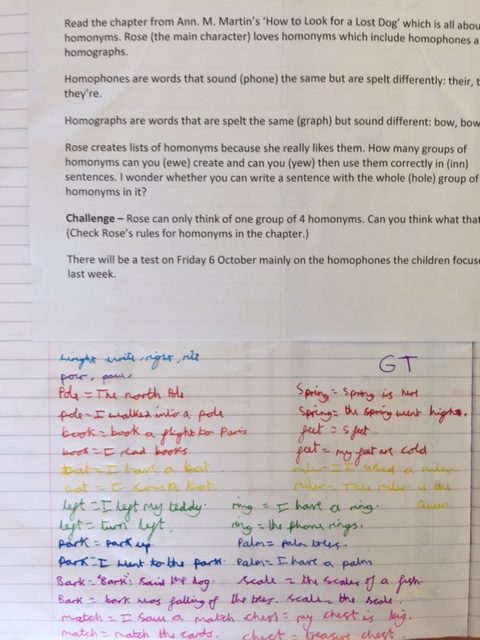 Read the chapter from Ann. M. Martin's 'How to Look for a Lost Dog' which is all abou
homonyms. Rose (the main character) loves homonyms which include homophones a
homographs.
Homophones are words that sound (phone) the same but are spelt differently: their, t
they're.
Homographs are words that are spelt the same (graph) but sound different: bow, bow
Rose creates lists of homonyms because she really likes them. How many groups of
homonyms can you (ewe) create and can you (yew) then use them correctly in (inn)
sentences. I wonder whether you can write a sentence with the whole (hole) group of
homonyms in it?
Challenge – Rose can only think of one group of 4 homonyms. Can you think what that
(Check Rose's rules for homonyms in the chapter.)
There will be a test on Friday 6 October mainly on the homophones the children focuse
last week.
write, right,
GT
Pole = The north Pole
pole = I walked into a pole
book = book a flight to Paris
book = I read books
bat = I have a bat
bat = I saw a bat.
left = I left my teddy.
left = turn left.
Park = park up
Park = I went to the park.
Bark = "Bark" said the dog.
Bark = bark was falling of the tree.
match = I saw a match
match = match the cards.
Spring = Spring is here
Spring = the spring went high.
feet = 5 feet
feet = my feet are cold
ruler = I used a ruler
ruler = The ruler is the
Queen
ring = I have a ring.
ring = the phone rings.
Palm = palm trees.
Palm = I have a palm
Scale = the scales of a fish.
scale = the scale.
chest = my chest is big.
chest = treasure chest